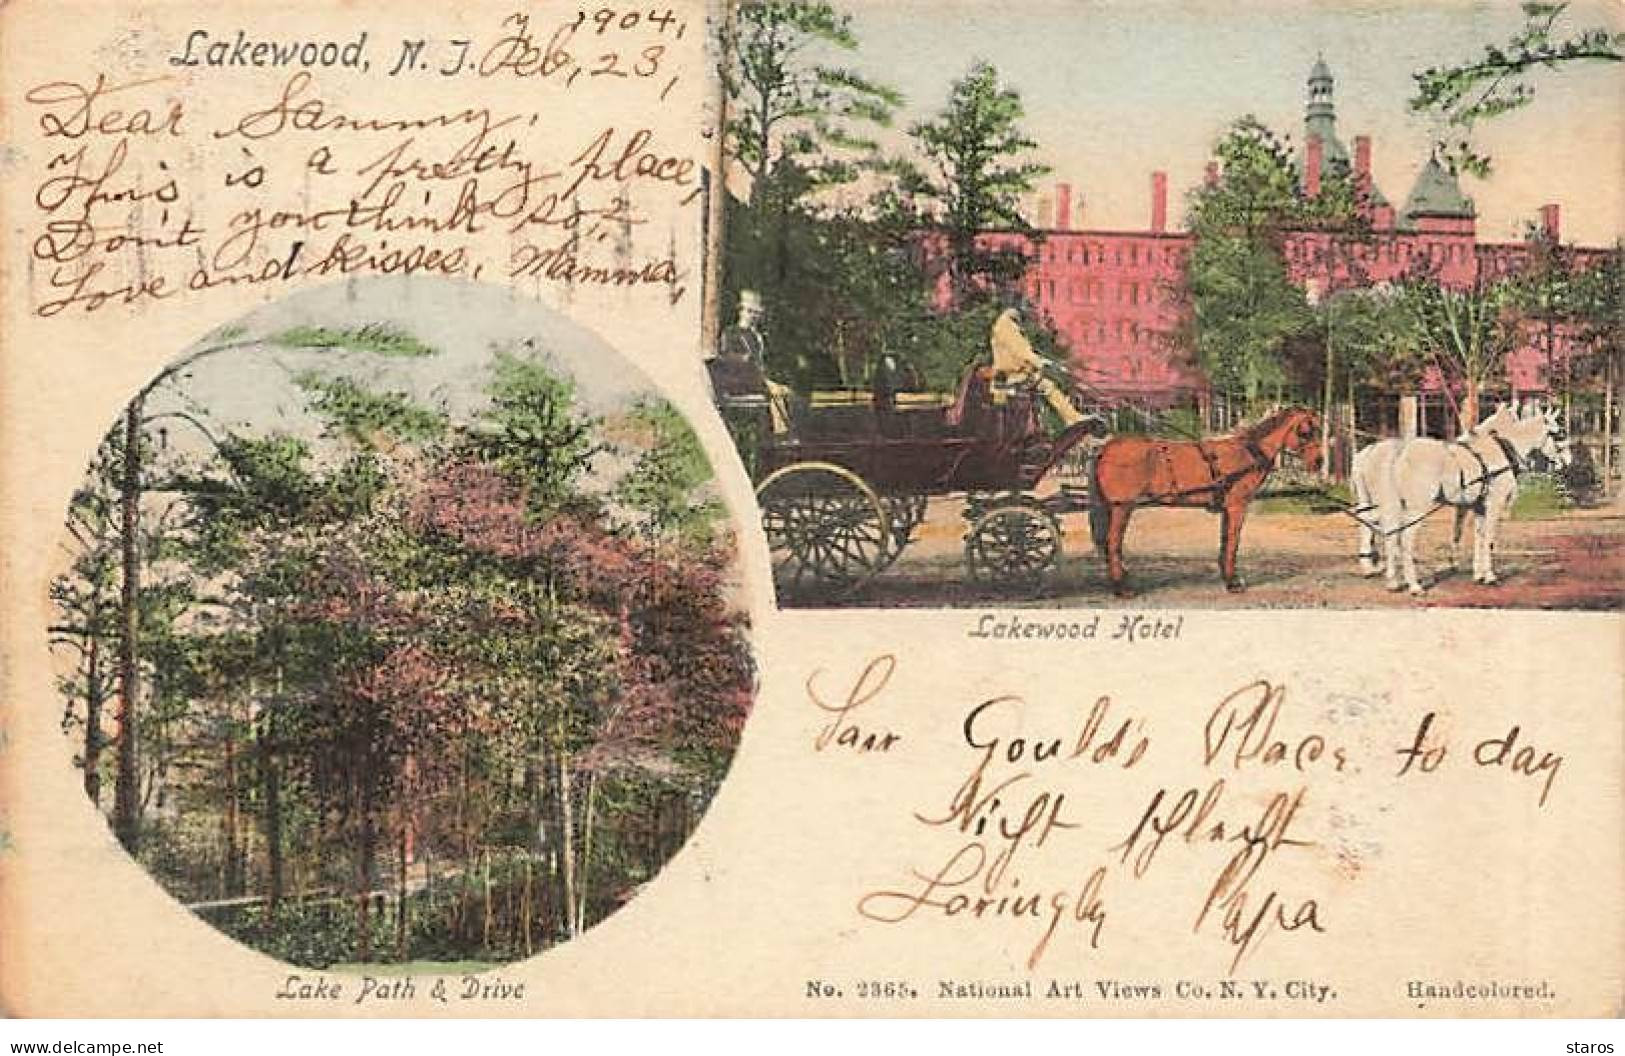 1904,
Lakewood, N. J. Feb, 23,
Dear Sammy,
This is a pretty place,
Don't you think so?
Love and kisses, Mamma,
Lakewood Hotel
Saw Gould's Place to day
Nicht schlecht
Lovingly Papa
Lake Path & Drive
No. 2365. National Art Views Co. N. Y. City. Handcolored.
www.delcampe.net
staros